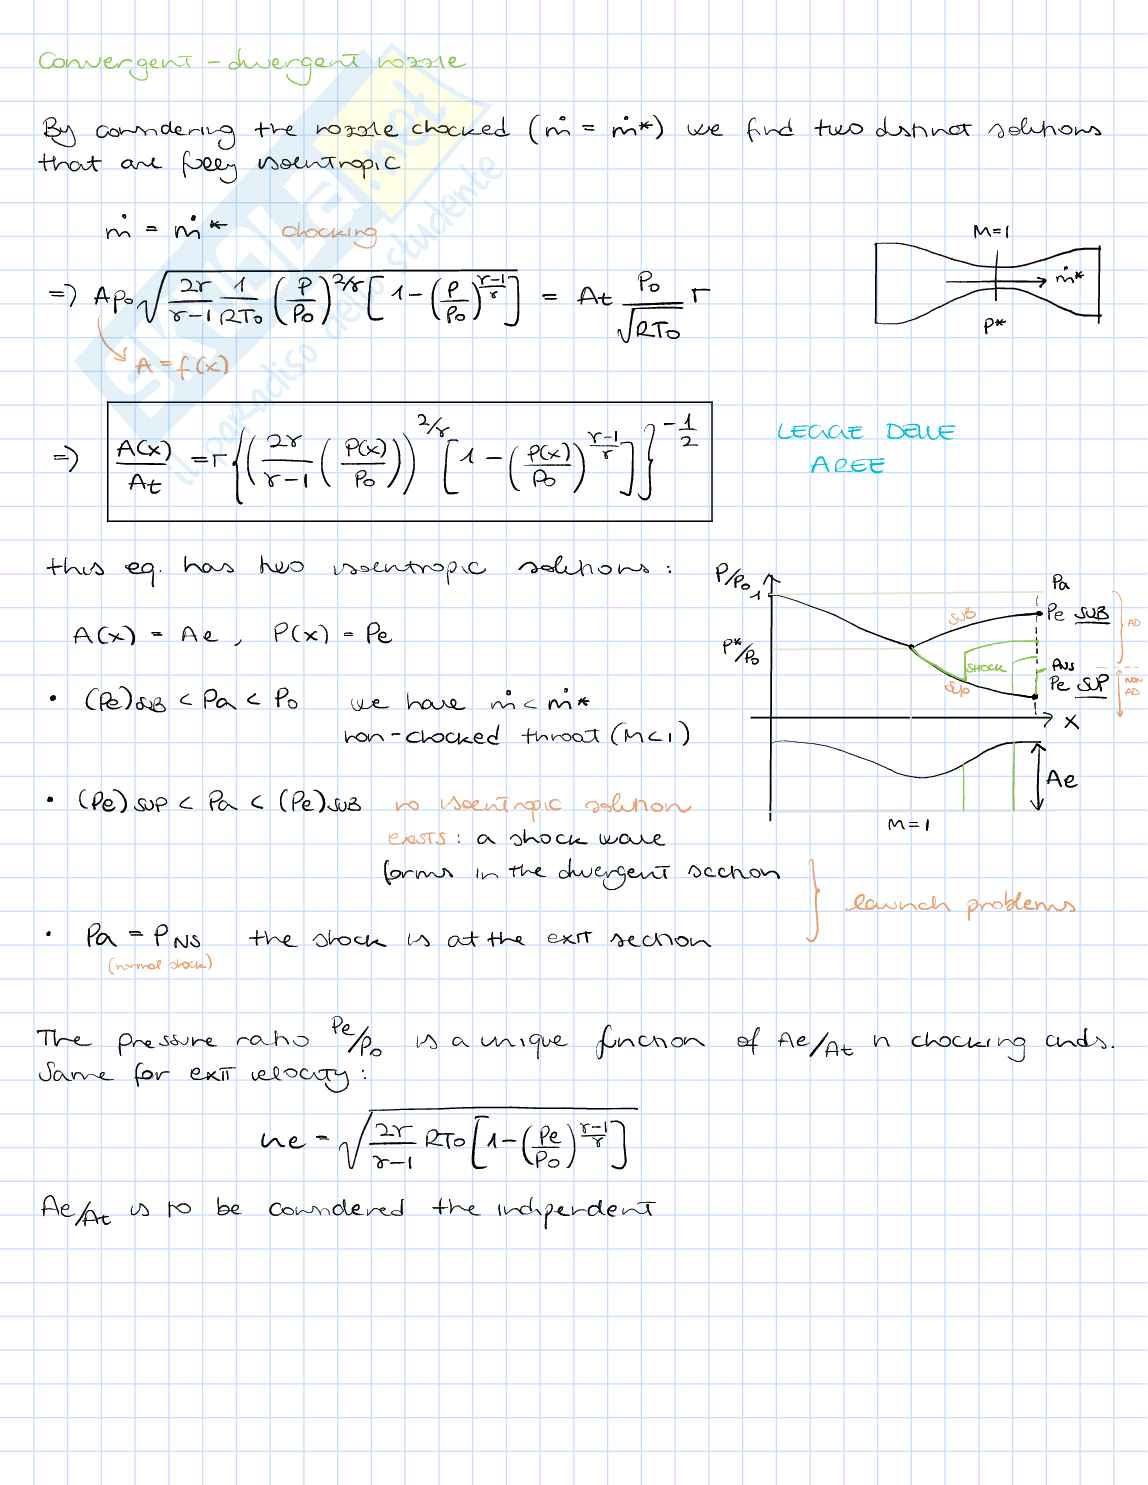 Convergent - divergent nozzle
By considering the nozzle chocked (ṁ = ṁ*) we find two distinct solutions
that are fully isentropic
ṁ = ṁ* chocking
=> A p₀ √( 2γ/(γ-1) 1/(RT₀) (P/P₀)^(2/γ) [1-(P/P₀)^((γ-1)/γ)] ) = At P₀/√(RT₀) Γ
A = f(x)
M=1
ṁ*
P*
=> A(x)/At = Γ { ( 2γ/(γ-1) ( P(x)/P₀ ) )^(2/γ) [ 1 - ( P(x)/P₀ )^((γ-1)/γ) ] }^(-1/2)
LEGGE DELLE
AREE
this eq. has two isentropic solutions :
A(x) = Ae , P(x) = Pe
• (Pe)SUB < Pa < P₀ we have ṁ < ṁ*
non-chocked throat (M<1)
• (Pe)SUP < Pa < (Pe)SUB no isentropic solution
exists : a shock wave
forms in the divergent section
• Pa = PNS the shock is at the exit section
(normal shock)
launch problems
P/P₀
1
P*/P₀
SUB
SHOCK
SUP
Pa
Pe SUB
AD
PNS
Pe SUP
NON
AD
X
Ae
M=1
The pressure ratio Pe/P₀ is a unique function of Ae/At n chocking cnds.
Same for exit velocity :
ue = √( 2γ/(γ-1) RT₀ [1-(Pe/P₀)^((γ-1)/γ)] )
Ae/At is to be considered the indipendent
SKUOLA.net
il paradiso dello studente